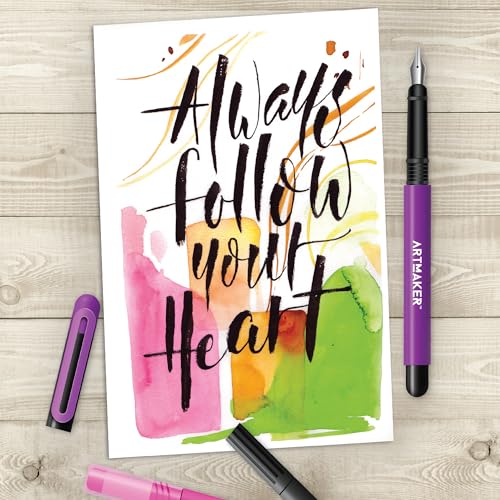 Always
follow
your
Heart
ARTMAKER™